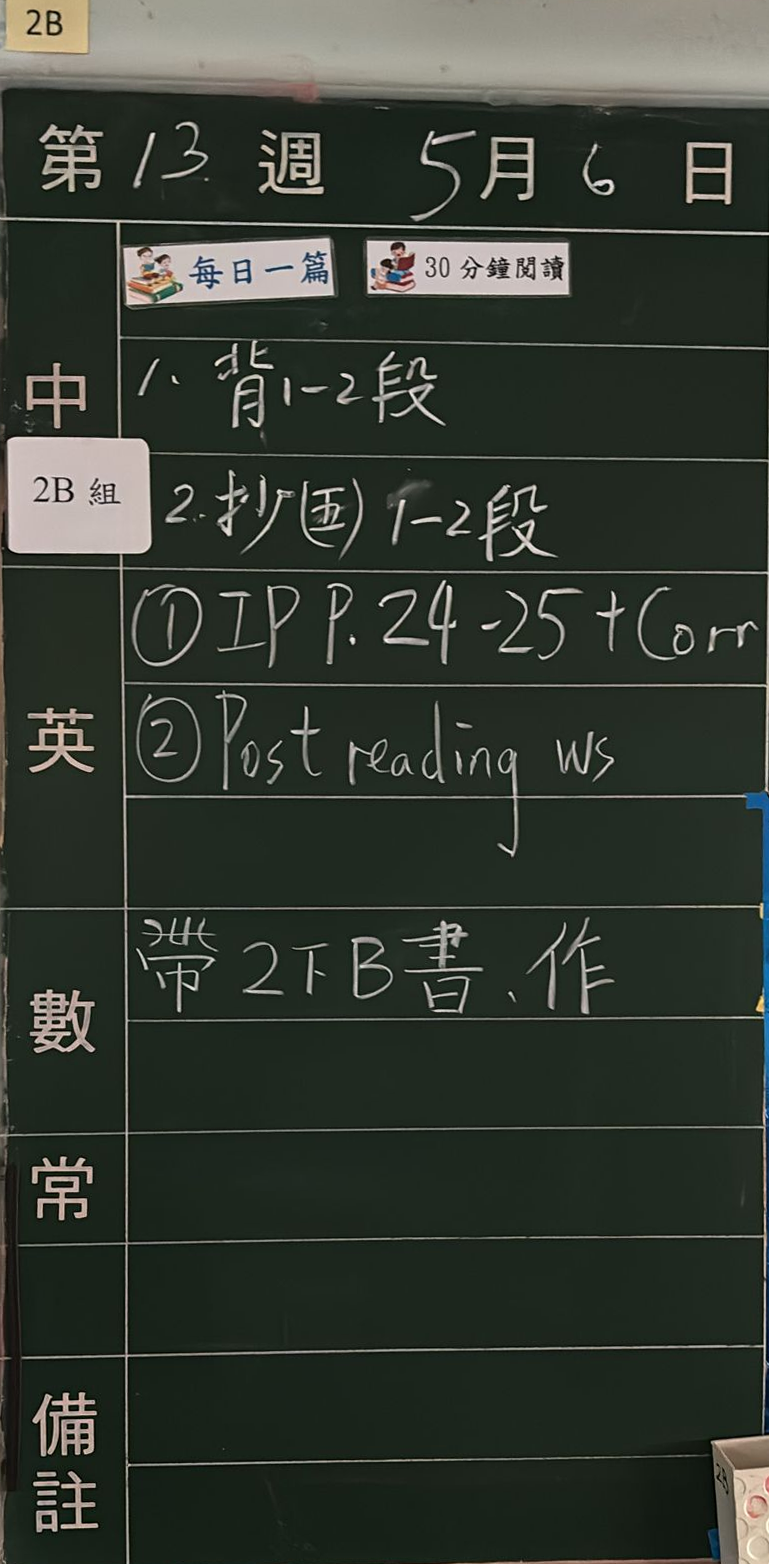 2B
第 13 週 5月 6 日
每日一篇 30 分鐘閱讀
中
1. 背1-2段
2B 組
2. 抄(五) 1-2段
英
① IP P. 24-25 + Corr
② Post reading ws
數
帶 2下B書、作
常
備註
2B